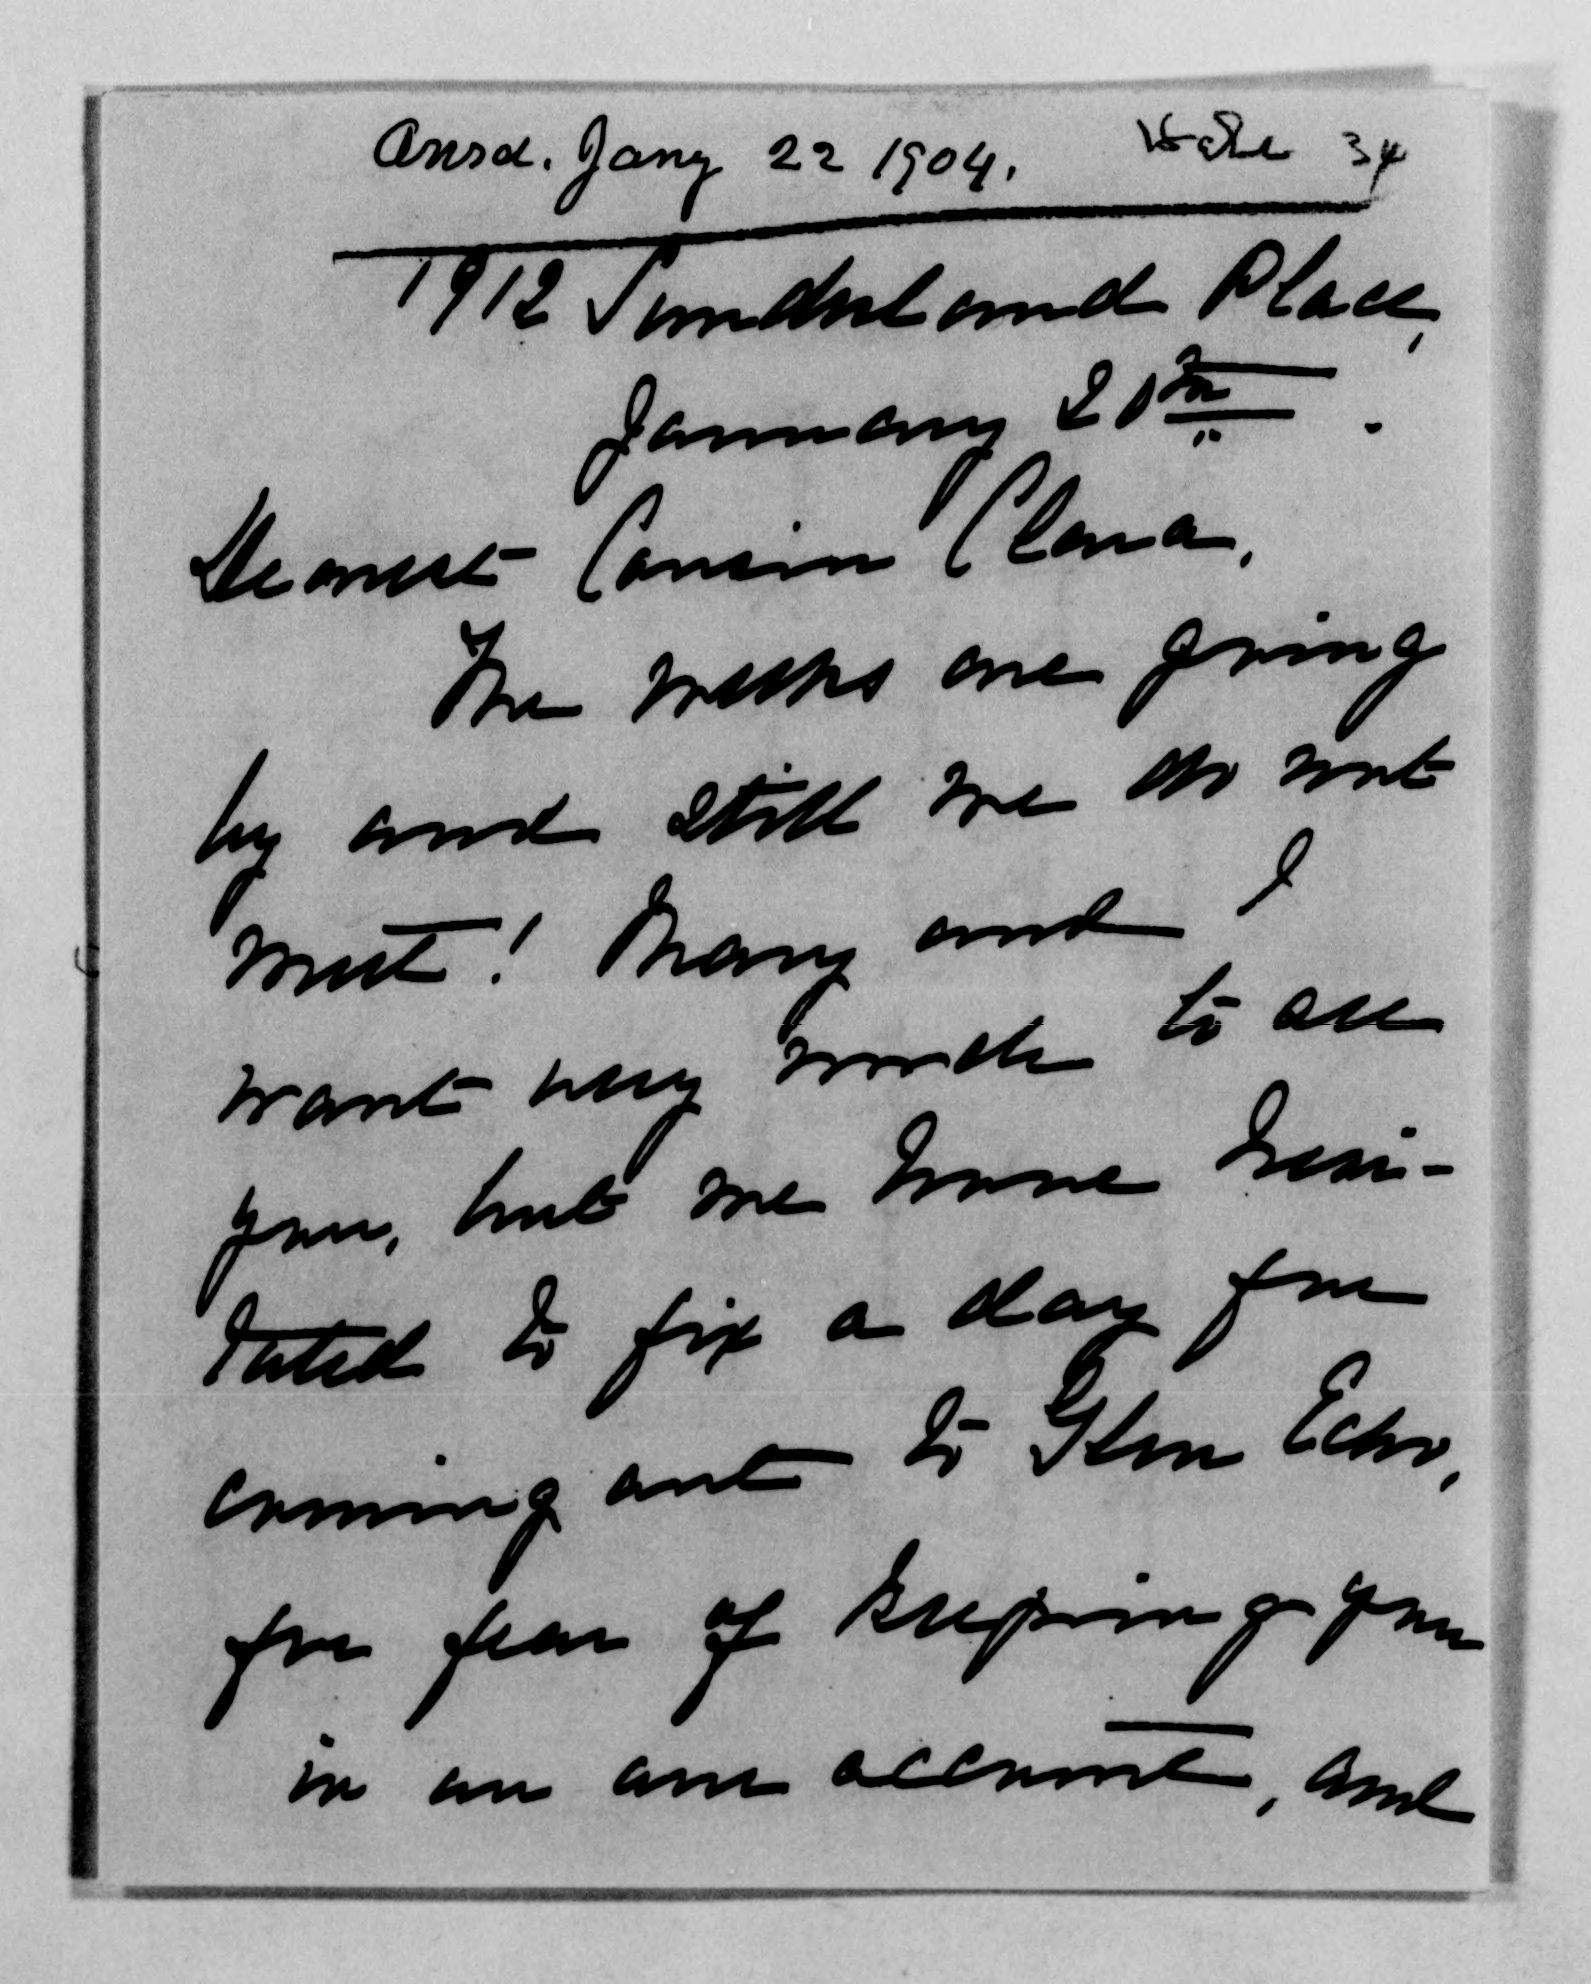 Ansd. Jany 22 1904. 34
1912 Sunderland Place,
January 20th.
Dearest Cousin Clara,
The weeks are going
by and still we do not
meet! Mary and I
want very much to see
you, but we have hesi-
tated to fix a day for
coming out to Glen Echo,
for fear of keeping you
in on our account, and